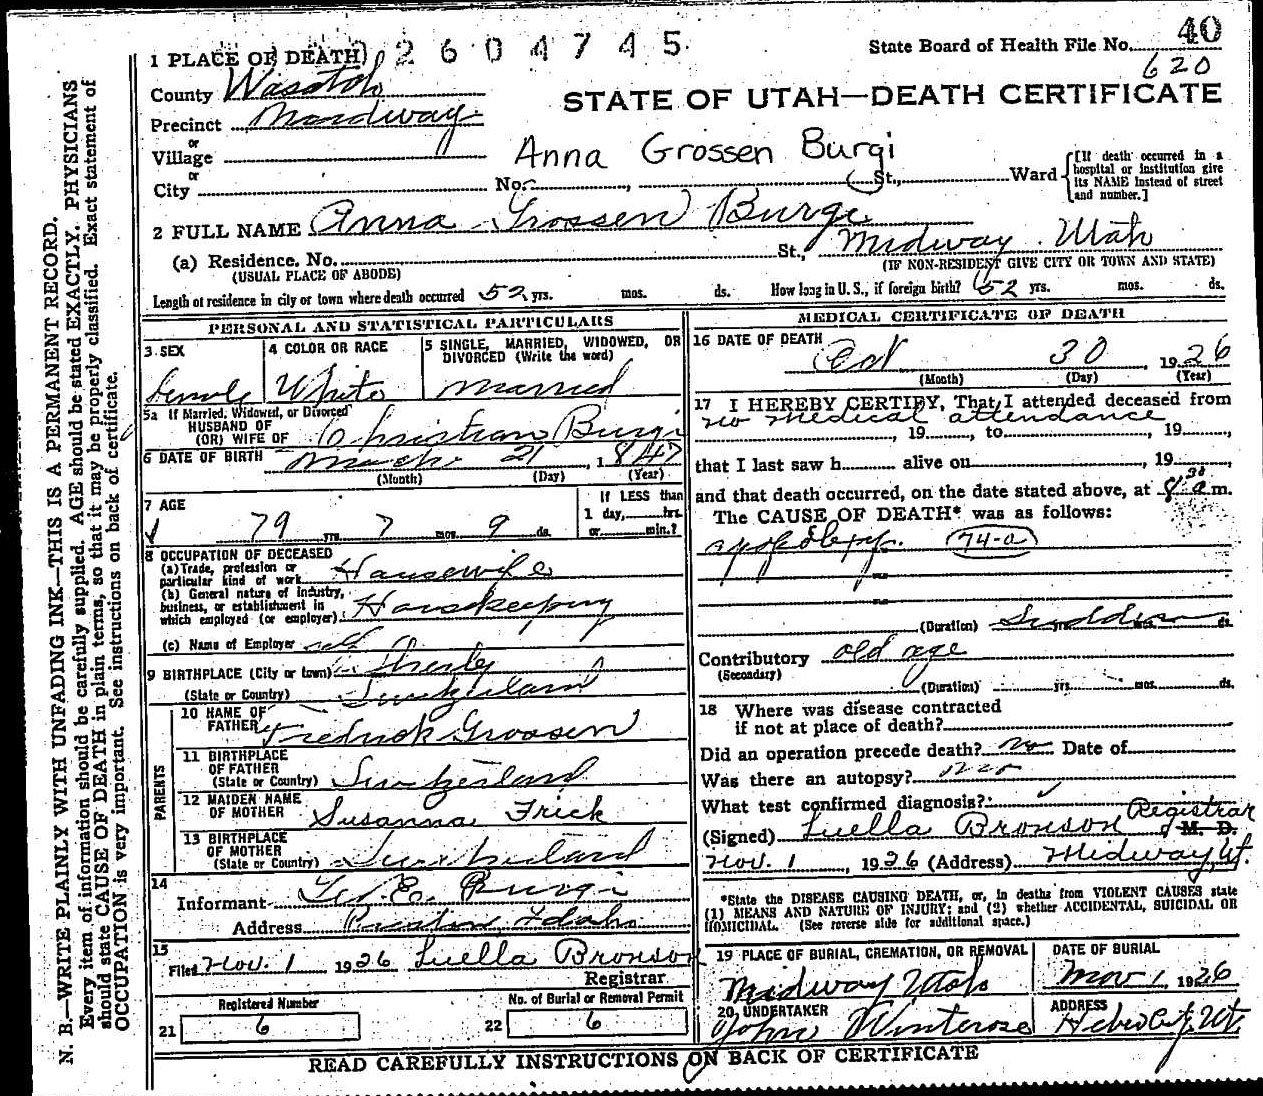 40
2604745
State Board of Health File No.
620
1 PLACE OF DEATH
County Wasatch
STATE OF UTAH—DEATH CERTIFICATE
Precinct Mardway
or
Village
Anna Grossen Burgi
or
City No. St., Ward
[If death occurred in a hospital or institution give its NAME instead of street and number.]
2 FULL NAME Anna Grossen Burgi
(a) Residence. No. St., Midway Utah
(USUAL PLACE OF ABODE) (IF NON-RESIDENT GIVE CITY OR TOWN AND STATE)
Length of residence in city or town where death occurred 52 yrs. mos. ds. How long in U. S., if foreign birth? 52 yrs. mos. ds.
PERSONAL AND STATISTICAL PARTICULARS
3 SEX
4 COLOR OR RACE
5 SINGLE, MARRIED, WIDOWED, OR DIVORCED (Write the word)
Female White Married
5a If Married, Widowed, or Divorced
HUSBAND OF
(OR) WIFE OF Christian Burgi
6 DATE OF BIRTH March 21, 1847
(Month) (Day) (Year)
7 AGE
If LESS than
1 day, hrs.
79 yrs. 7 mos. 9 ds. or min.?
8 OCCUPATION OF DECEASED
(a) Trade, profession or
particular kind of work Housewife
(b) General nature of industry,
business, or establishment in
which employed (or employer). Housekeeping
(c) Name of Employer self
9 BIRTHPLACE (City or town)
(State or Country) Switzerland
PARENTS
10 NAME OF
FATHER Fredrick Grossen
11 BIRTHPLACE
OF FATHER
(State or Country) Switzerland
12 MAIDEN NAME
OF MOTHER Susanna Frick
13 BIRTHPLACE
OF MOTHER
(State or Country) Switzerland
14
Informant E. Burgi
Address Preston, Idaho
15
Filed Nov. 1 1926 Luella Bronson
Registrar
Registered Number
21 6
No. of Burial or Removal Permit
22 6
MEDICAL CERTIFICATE OF DEATH
16 DATE OF DEATH
Oct 30 1926
(Month) (Day) (Year)
17 I HEREBY CERTIFY, That I attended deceased from
no medical attendance
, 19, to , 19,
that I last saw h alive on , 19,
and that death occurred, on the date stated above, at 8 30 a m.
The CAUSE OF DEATH* was as follows:
apoplexy. 74-a
(Duration) Sudden yrs. mos. ds.
Contributory old age
(Secondary)
(Duration) yrs. mos. ds.
18 Where was disease contracted
if not at place of death?
Did an operation precede death? no Date of
Was there an autopsy? no
What test confirmed diagnosis?
Registrar
(Signed) Luella Bronson M. D.
Nov. 1, 1926 (Address) Midway, Ut.
*State the DISEASE CAUSING DEATH, or, in deaths from VIOLENT CAUSES state
(1) MEANS AND NATURE OF INJURY; and (2) whether ACCIDENTAL, SUICIDAL OR
HOMICIDAL. (See reverse side for additional space.)
19 PLACE OF BURIAL, CREMATION, OR REMOVAL
Midway Utah
DATE OF BURIAL
Nov 1, 1926
20 UNDERTAKER
John Winterose
ADDRESS
Heber City, Ut.
READ CAREFULLY INSTRUCTIONS ON BACK OF CERTIFICATE
N. B.—WRITE PLAINLY WITH UNFADING INK—THIS IS A PERMANENT RECORD.
Every item of information should be carefully supplied. AGE should be stated EXACTLY. PHYSICIANS
should state CAUSE OF DEATH in plain terms, so that it may be properly classified. Exact statement of
OCCUPATION is very important. See instructions on back of certificate.